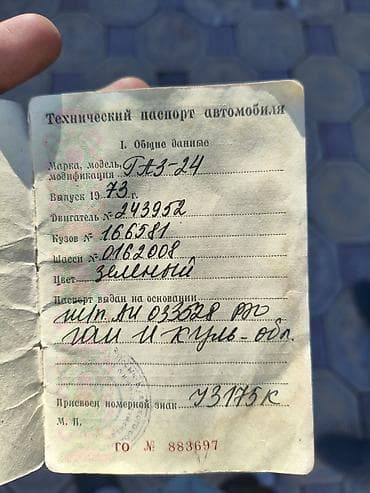 Технический паспорт автомобиля
I. Общие данные
Марка, модель,
модификация ГАЗ-24
Выпуск 1973 г.
Двигатель № 243952
Кузов № 166581
Шасси № 0162008
Цвет зеленый
Паспорт выдан на основании
т/п. АИ 033528 РЭО
ГАИ и Куль-обл.
Присвоен номерной знак У3175К
М. П.
ГО № 883697